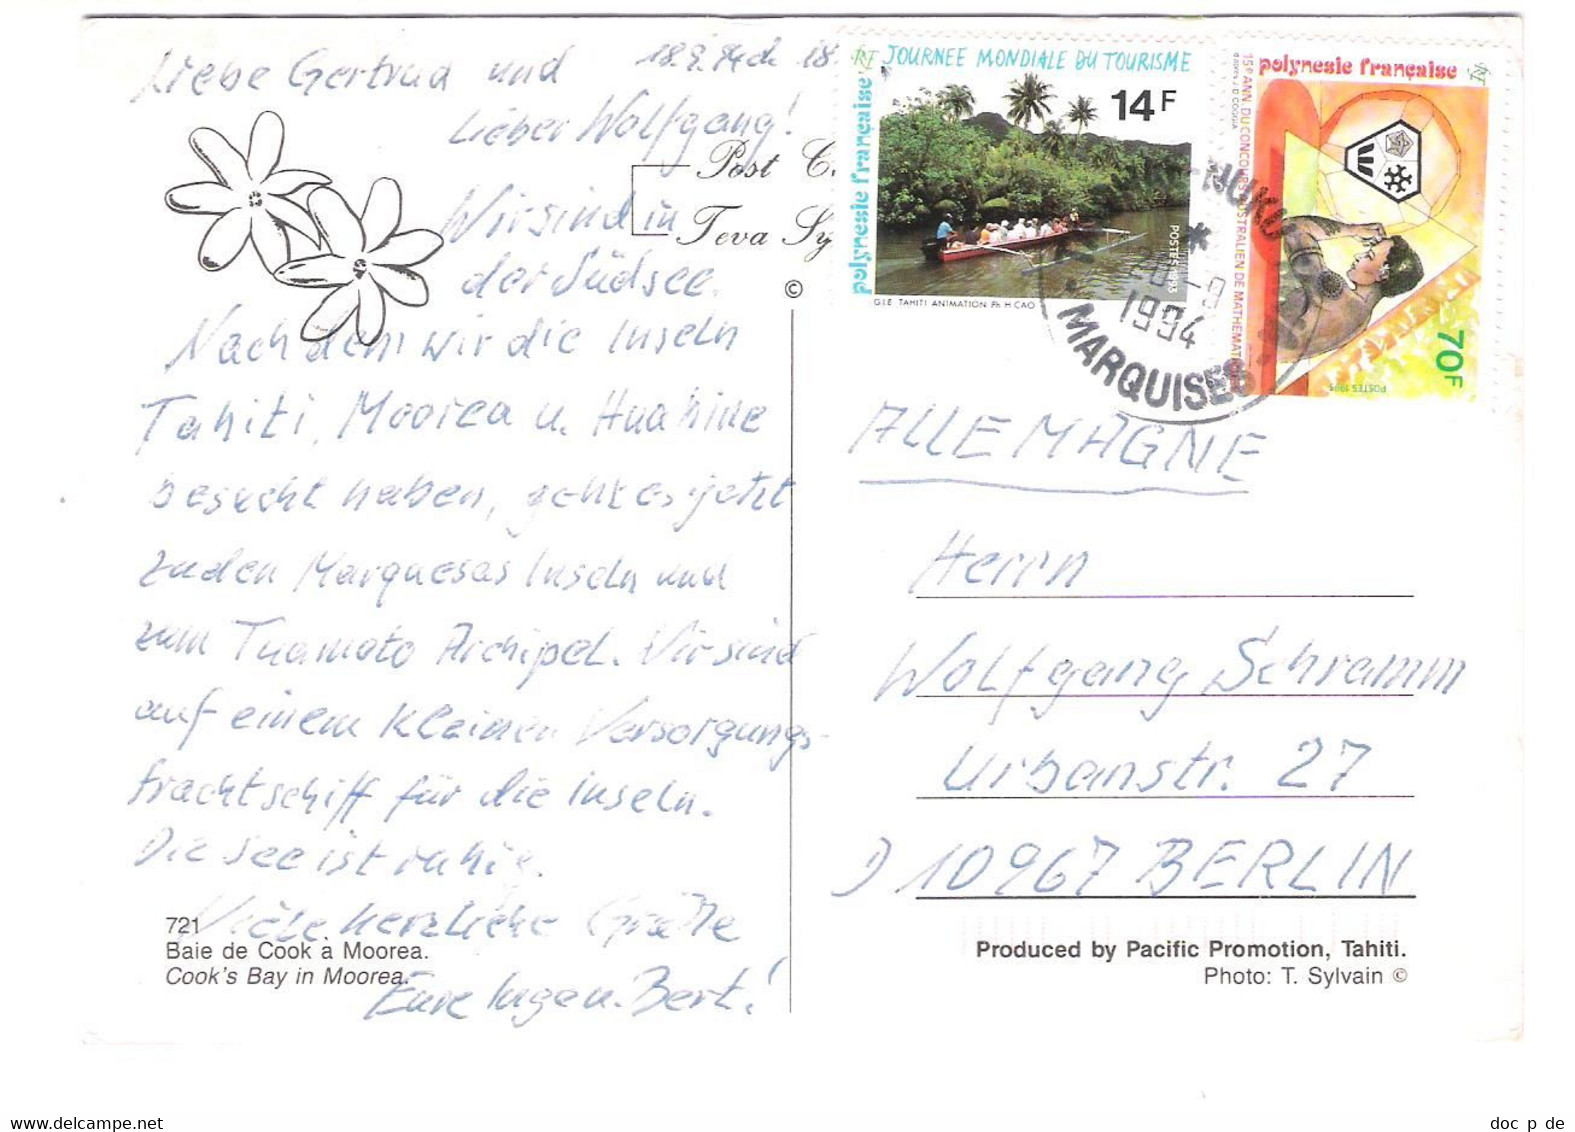 Liebe Gertrud und
Lieber Wolfgang!
Wir sind in
der Südsee.
Nachdem wir die Inseln
Tahiti, Moorea u. Huahine
besucht haben, geht es jetzt
zu den Marquesas Inseln und
zum Tuamoto Archipel. Wir sind
auf einem kleinen Versorgungs-
frachtschiff für die Inseln.
Die See ist ruhig.
Viele herzliche Grüße
Eure Inge u. Bert!
Post C
Teva Sy
©
721
Baie de Cook à Moorea.
Cook's Bay in Moorea.
RF JOURNEE MONDIALE DU TOURISME
14F
polynesie française
POSTES 1993
G.I.E TAHITI ANIMATION Ph H CAO
polynesie française RF
15e ANN. DU CONCOURS AUSTRALIEN DE MATHEMATI
70F
POSTES 1995
1994
MARQUISES
ALLEMAGNE
Herrn
Wolfgang Schramm
Urbanstr. 27
D 10967 BERLIN
Produced by Pacific Promotion, Tahiti.
Photo: T. Sylvain ©
doc_p_de